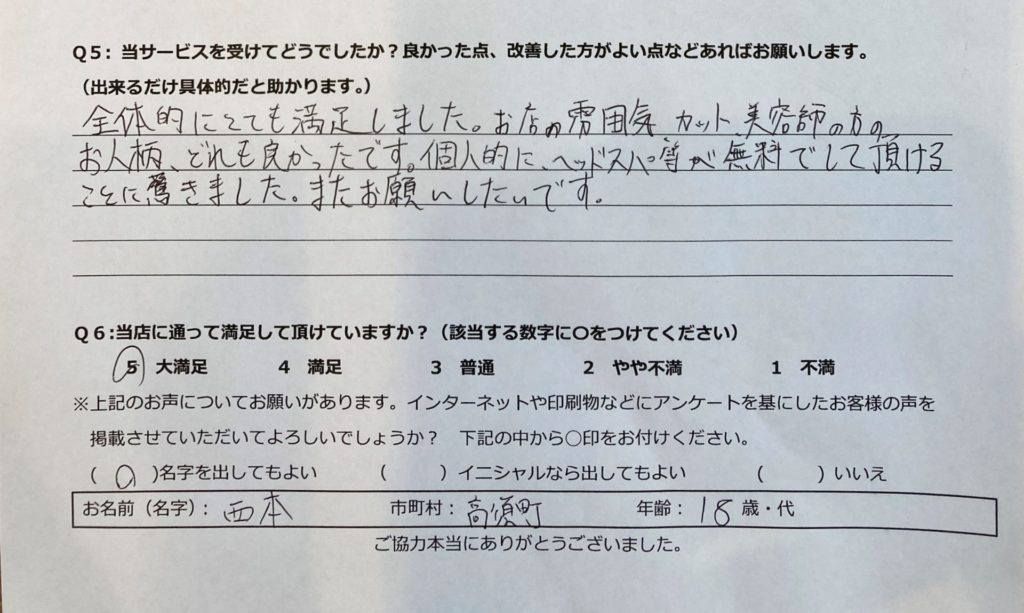 Q5: 当サービスを受けてどうでしたか？良かった点、改善した方がよい点などあればお願いします。
（出来るだけ具体的だと助かります。）
全体的にとても満足しました。お店の雰囲気、カット、美容師の方の
お人柄、どれも良かったです。個人的に、ヘッドスパ等が無料でして頂ける
ことに驚きました。またお願いしたいです。
Q6:当店に通って満足して頂けていますか？（該当する数字に〇をつけてください）
5 大満足 4 満足 3 普通 2 やや不満 1 不満
※上記のお声についてお願いがあります。インターネットや印刷物などにアンケートを基にしたお客様の声を
掲載させていただいてよろしいでしょうか？ 下記の中から〇印をお付けください。
（ 〇 ）名字を出してもよい （ ）イニシャルなら出してもよい （ ）いいえ
お名前（名字）： 西本 市町村： 高須町 年齢： 18 歳・代
ご協力本当にありがとうございました。